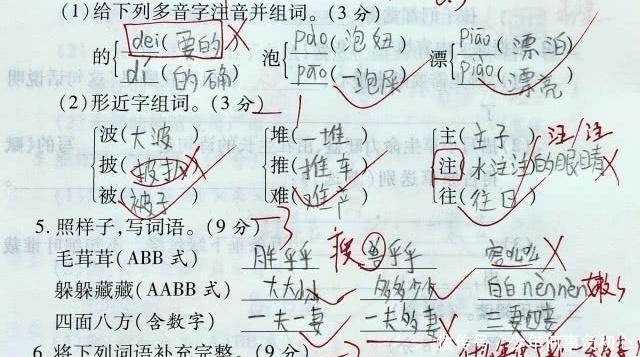 (1)给下列多音字注音并组词。(3分)
的{ dei(要的) 泡{ pāo(泡纽) 漂{ piāo(漂泊)
dí(的确) pào(一泡尿) piào(漂亮)
(2)形近字组词。(3分) 一1
波(大波) 堆(一堆) 主(主子) 注/注
披(披扒) 推(推车) 注(水注注的眼睛)
被(被子) 难(难产) 往(往日)
5.照样子,写词语。(9分) 一3
毛茸茸(ABB式) 胖乎乎 瘦
躲躲藏藏(AABB式) 大大小小 多多少少 白白nènnèn 嫩
四面八方(含数字) 一夫一妻 一夫多妻 三妻四妾
6.将下列词语补充完整。(9分)